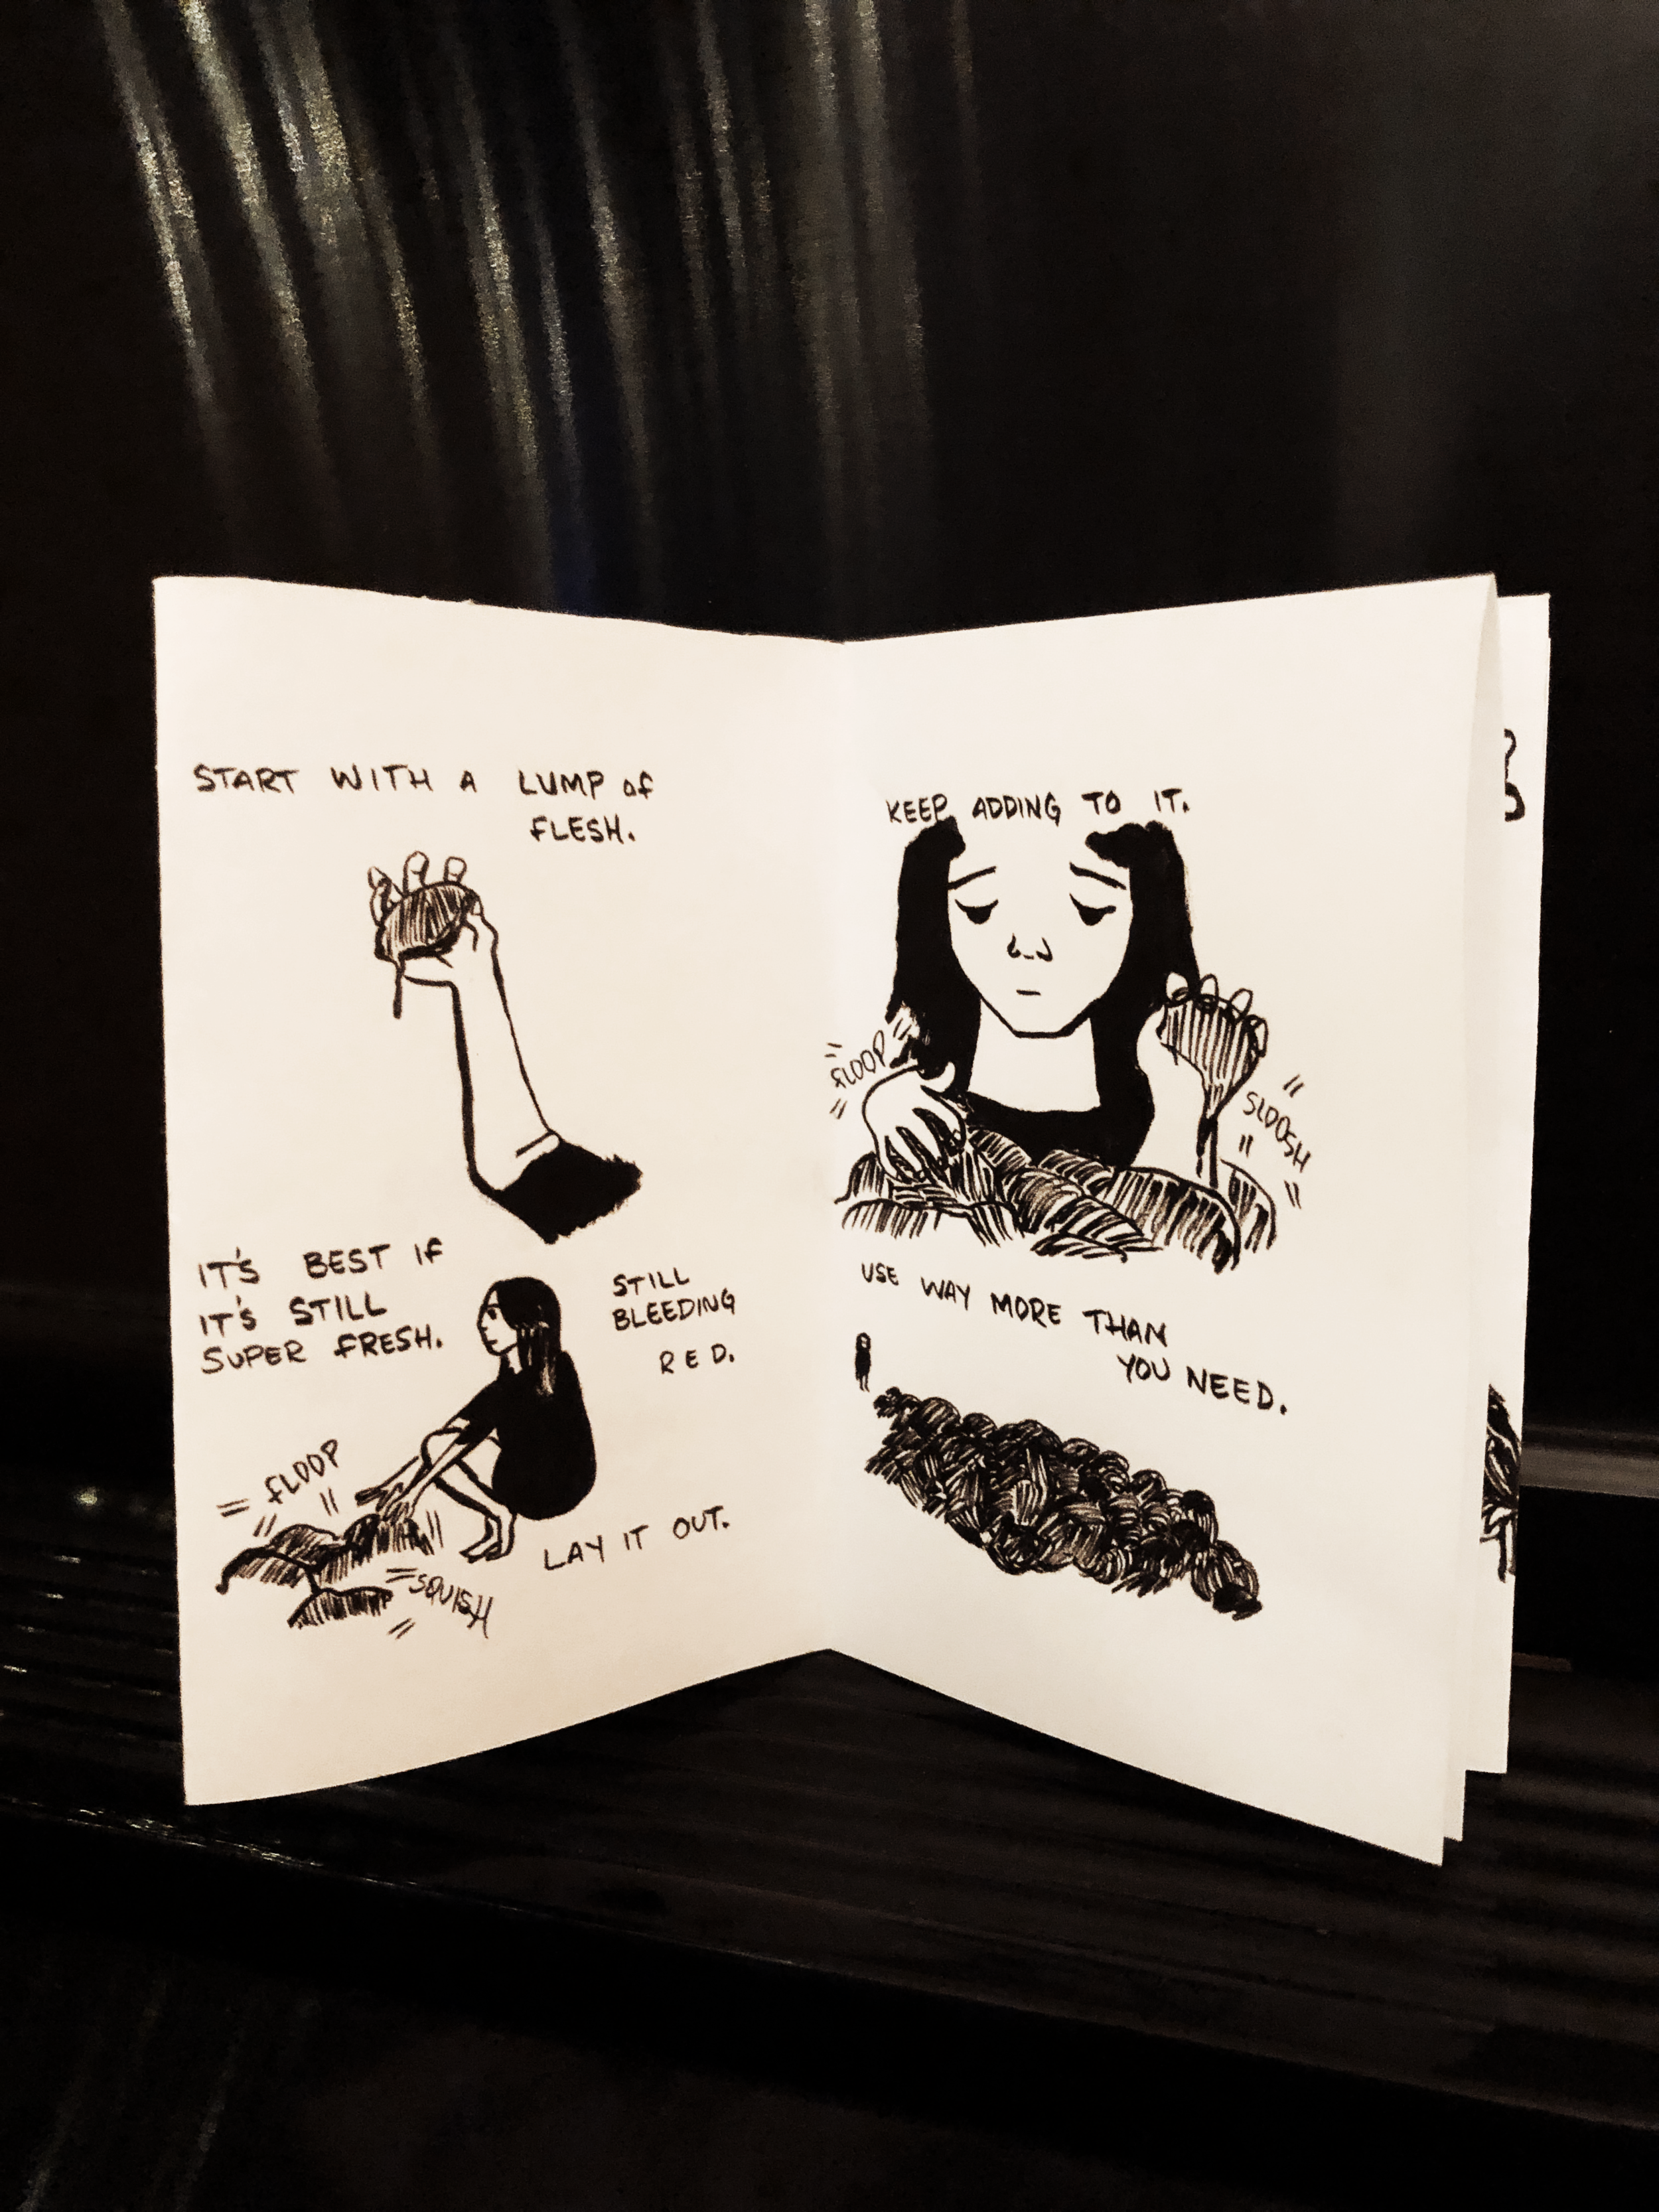 START WITH A LUMP of
FLESH.
IT'S BEST IF
IT'S STILL
SUPER FRESH.
STILL
BLEEDING
RED.
FLOOP
LAY IT OUT.
SQUISH
KEEP ADDING TO IT.
FLOOP
SLOOSH
USE WAY MORE THAN
YOU NEED.